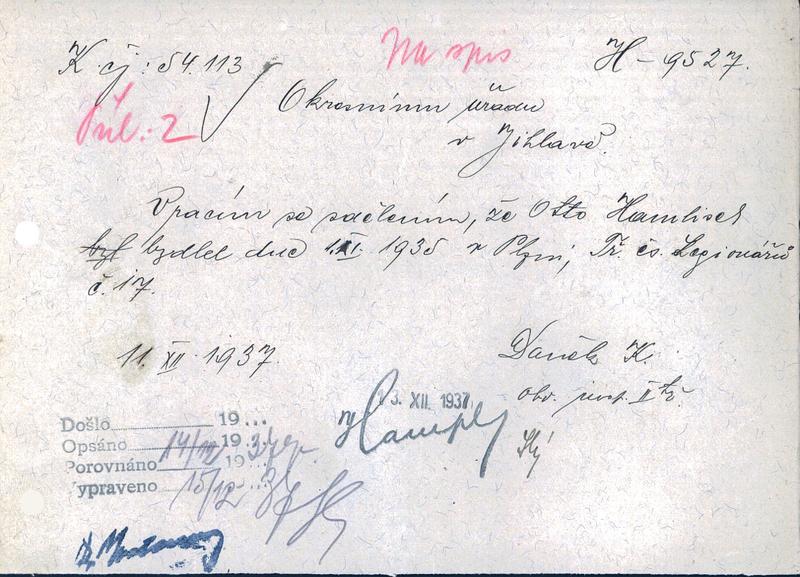 K čj: 54.113
Na spis
H - 9527.
Příl.: 2
Okresnímu úřadu
v Jihlavě.
Vracím se sdělením, že Otto Hamlisch
byl bydlel dne 1.XI. 1935 v Plzni, Tř. čs. Legionářů
č. 17.
11. XII. 1937.
Daněk K.
obv. insp. II tř.
13. XII. 1937
Došlo 19...
Opsáno 14/12 19 37
Porovnáno 19...
Vypraveno 15/12 37